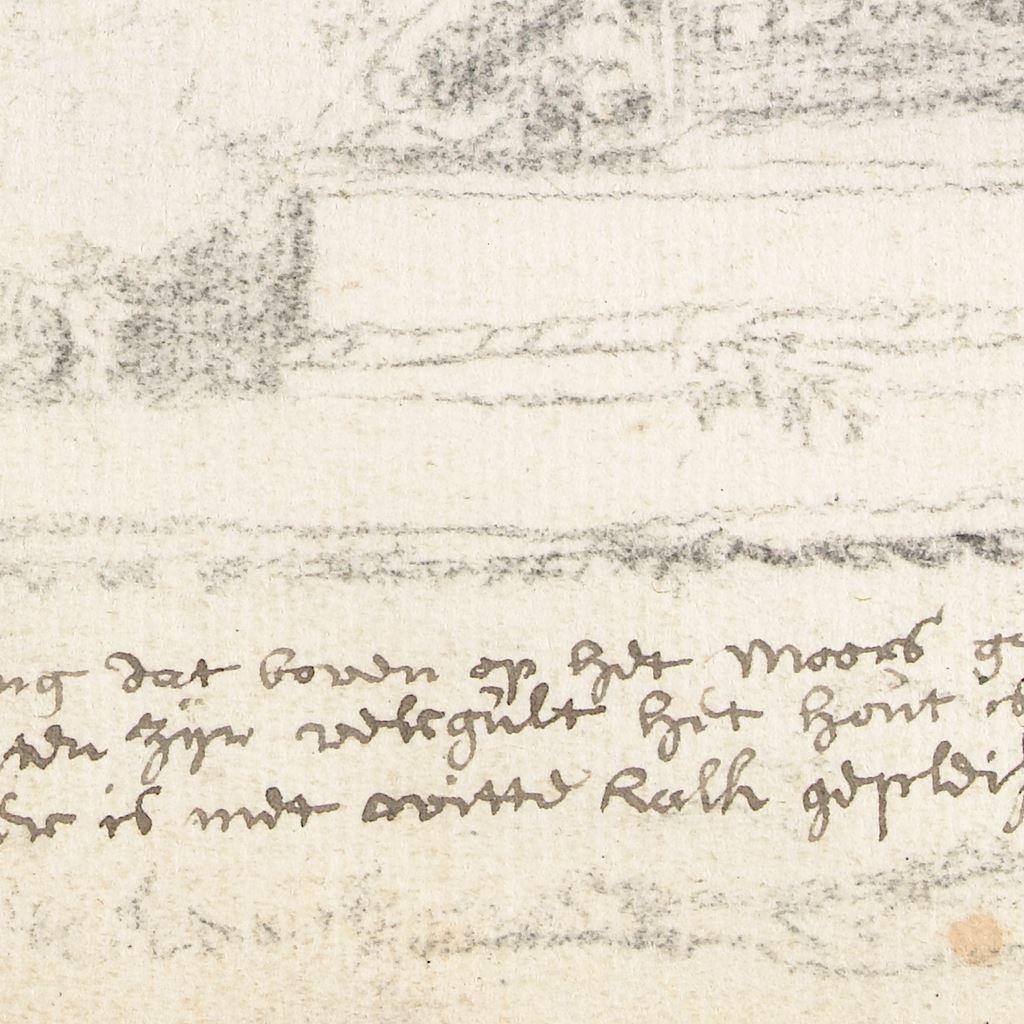 ng dat boven op het moors g
ten zijn verkgult het hout is
er is met witte kalk gepleis